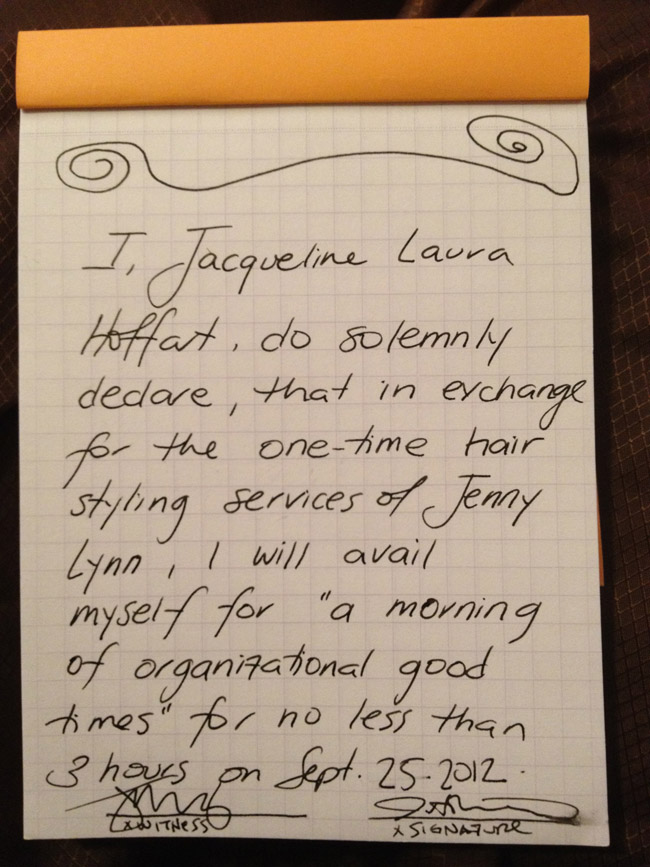 I, Jacqueline Laura
Hoffart, do solemnly
declare, that in exchange
for the one-time hair
styling services of Jenny
Lynn, I will avail
myself for "a morning
of organizational good
times" for no less than
3 hours on Sept. 25.2012.
x WITNESS x SIGNATURE